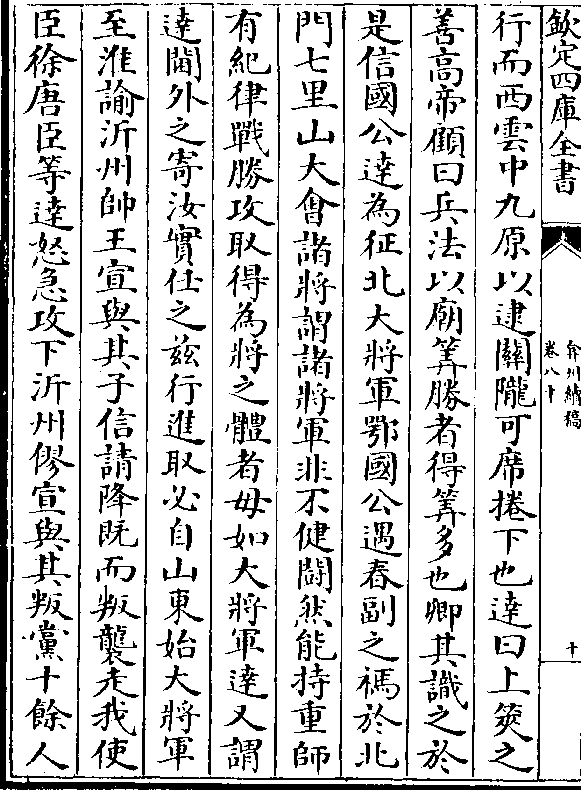 欽定四庫全書
弇州續稿
卷八十
十
行而西雲中九原以逮關隴可席捲下也達曰上筴之
善髙帝顧曰兵法以廟筭勝者得筭多也卿其識之於
是信國公達為征北大將軍鄂國公遇春副之禡於北
門七里山大會諸將謂諸將軍非不健鬬然能持重師
有紀律戰勝攻取得為將之體者毋如大將軍達又謂
達閫外之寄汝實任之兹行進取必自山東始大將軍
至淮諭沂州帥王宣與其子信請降既而叛襲走我使
臣徐唐臣等達怒急攻下沂州僇宣與其叛黨十餘人